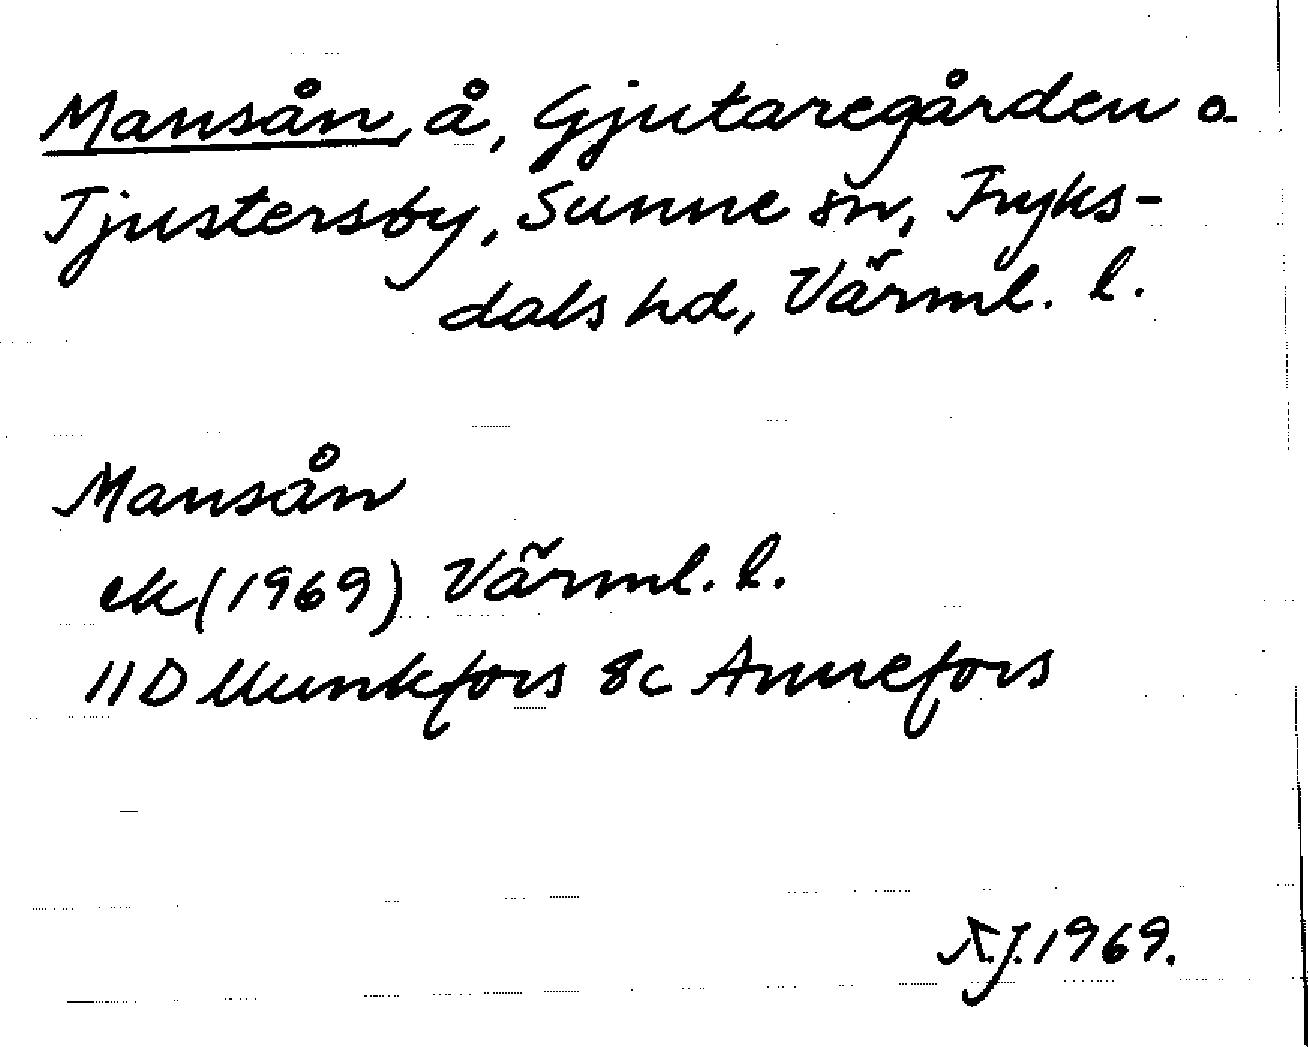 Mansån, å, Gjutaregården o.
Tjustersby, Sunne sn, Fryks-
dals hd, Värml. l.
Mansån
ek (1969) Värml. l.
11D Munkfors 8c Annefors
A.J. 1969.